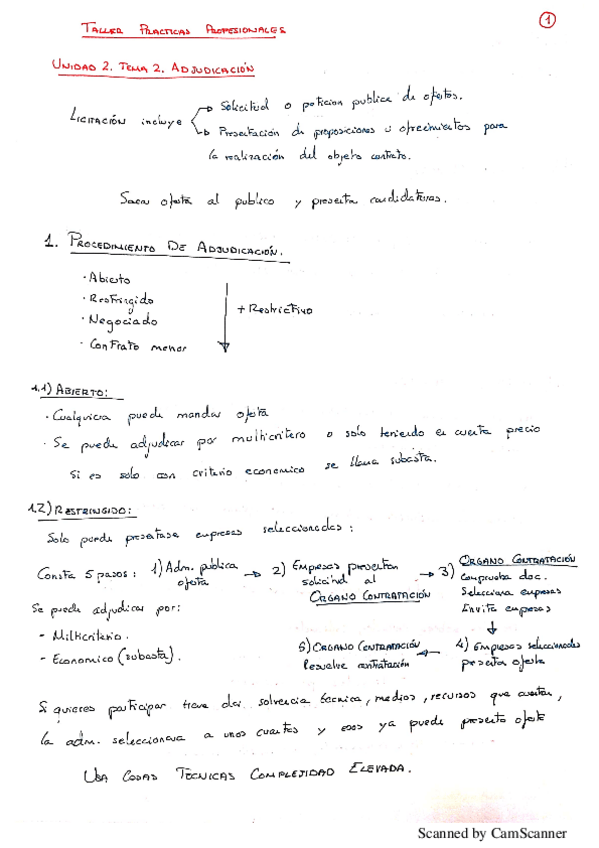 TALLER PRACTICAS PROFESIONALES
1
UNIDAD 2. TEMA 2. ADJUDICACIÓN
LICITACIÓN incluye
Solicitud o peticion publica de ofertas.
Presentación de proposiciones u ofrecimientos para
la realización del objeto contrato.
Sacar oferta al publico y presenta candidaturas.
1. PROCEDIMIENTO DE ADJUDICACIÓN.
· Abierto
· Restringido
· Negociado
· Contrato menor
+ Restrictivo
1.1) ABIERTO:
· Cualquiera puede mandar oferta
· Se puede adjudicar por multicritero o solo teniendo en cuenta precio
Si es solo con criterio economico se llama subasta.
1.2) RESTRINGIDO:
Solo puede presentarse empresas seleccionadas:
Consta 5 pasos: 1) Adm. publica
oferta
2) Empresas presentan
solicitud al
ORGANO CONTRATACIÓN
3) ORGANO CONTRATACIÓN
Comprueba doc.
Selecciona empresas
Invita empresas
4) Empresas seleccionadas
presenta oferta
5) ORGANO CONTRATACIÓN
Resuelve contratación
Se puede adjudicar por:
- Milticriterio.
- Economico (subasta).
Si quieres participar tiene dar solvencia tecnica, medios, recursos que cuentan,
la adm. selecciona a unos cuantos y esos ya puede presenta oferta
USA COSAS TECNICAS COMPLEJIDAD ELEVADA.
Scanned by CamScanner